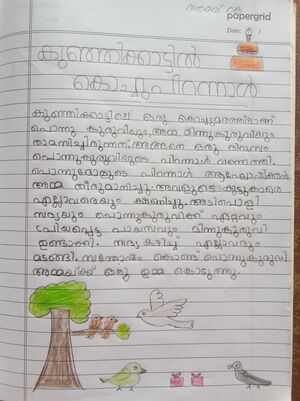 papergrid
Date: /
കുഞ്ഞിക്കാട്ടിൽ
കൊച്ചുപിറന്നാൾ
കുഞ്ഞിക്കാട്ടിലെ ഒരു കൊച്ചുമരത്തിലാണ്
പൊന്നു കുരുവിയും, അമ്മ മിന്നുകുരുവിയും
താമസിച്ചിരുന്നത്. അങ്ങനെ ഒരു ദിവസം
പൊന്നുകുരുവിയുടെ പിറന്നാൾ വന്നെത്തി.
പൊന്നുമോളുടെ പിറന്നാൾ ആഘോഷിക്കാൻ
അമ്മ തീരുമാനിച്ചു. അവളുടെ കൂട്ടുകാരെ
എല്ലാവരെയും ക്ഷണിച്ചു. അടിപൊളി
സദ്യയും പൊന്നുകുരുവിക്ക് ഏറ്റവും
പ്രിയപ്പെട്ട പായസവും മിന്നുകുരുവി
ഉണ്ടാക്കി. സദ്യ കഴിച്ച് എല്ലാവരും
മടങ്ങി. സന്തോഷം കൊണ്ട് പൊന്നുകുരുവി
അമ്മയ്ക്ക് ഒരു ഉമ്മ കൊടുത്തു.